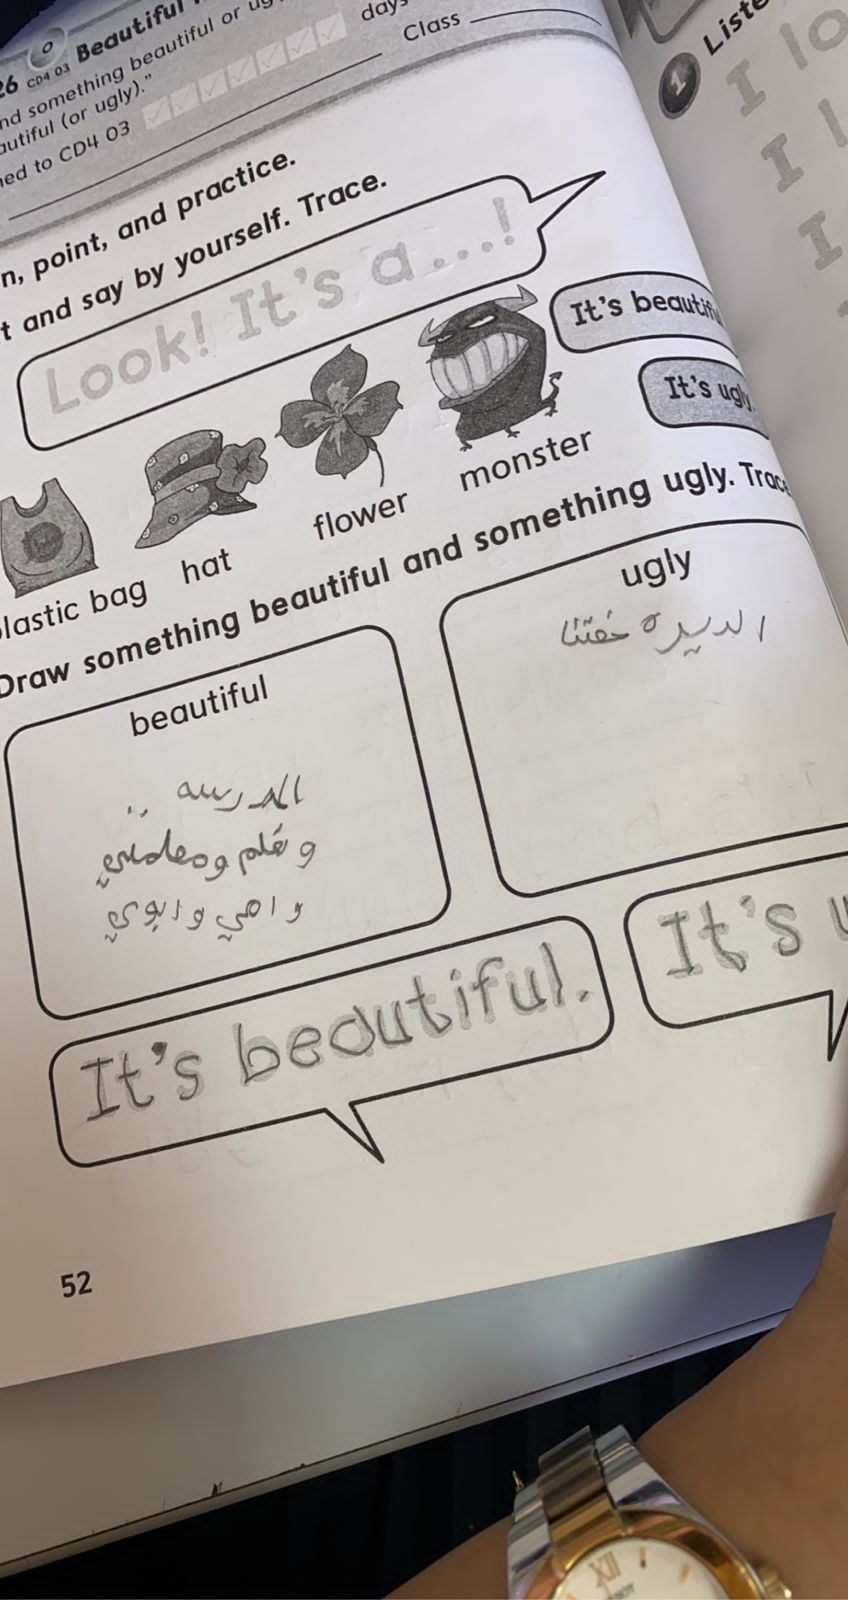 26 CD4 03 Beautiful
nd something beautiful or ug
autiful (or ugly)."
ned to CD4 03
days
Class
n, point, and practice.
t and say by yourself. Trace.
Look! It's a...!
It's beautif
It's ugly
lastic bag
hat
flower
monster
Draw something beautiful and something ugly. Trace
beautiful
المدرسه
وقلم ومعلمتي
وامي وابوي
ugly
الديره
It's beautiful.
It's u
52
1 Liste
I lo
I l
I
XII